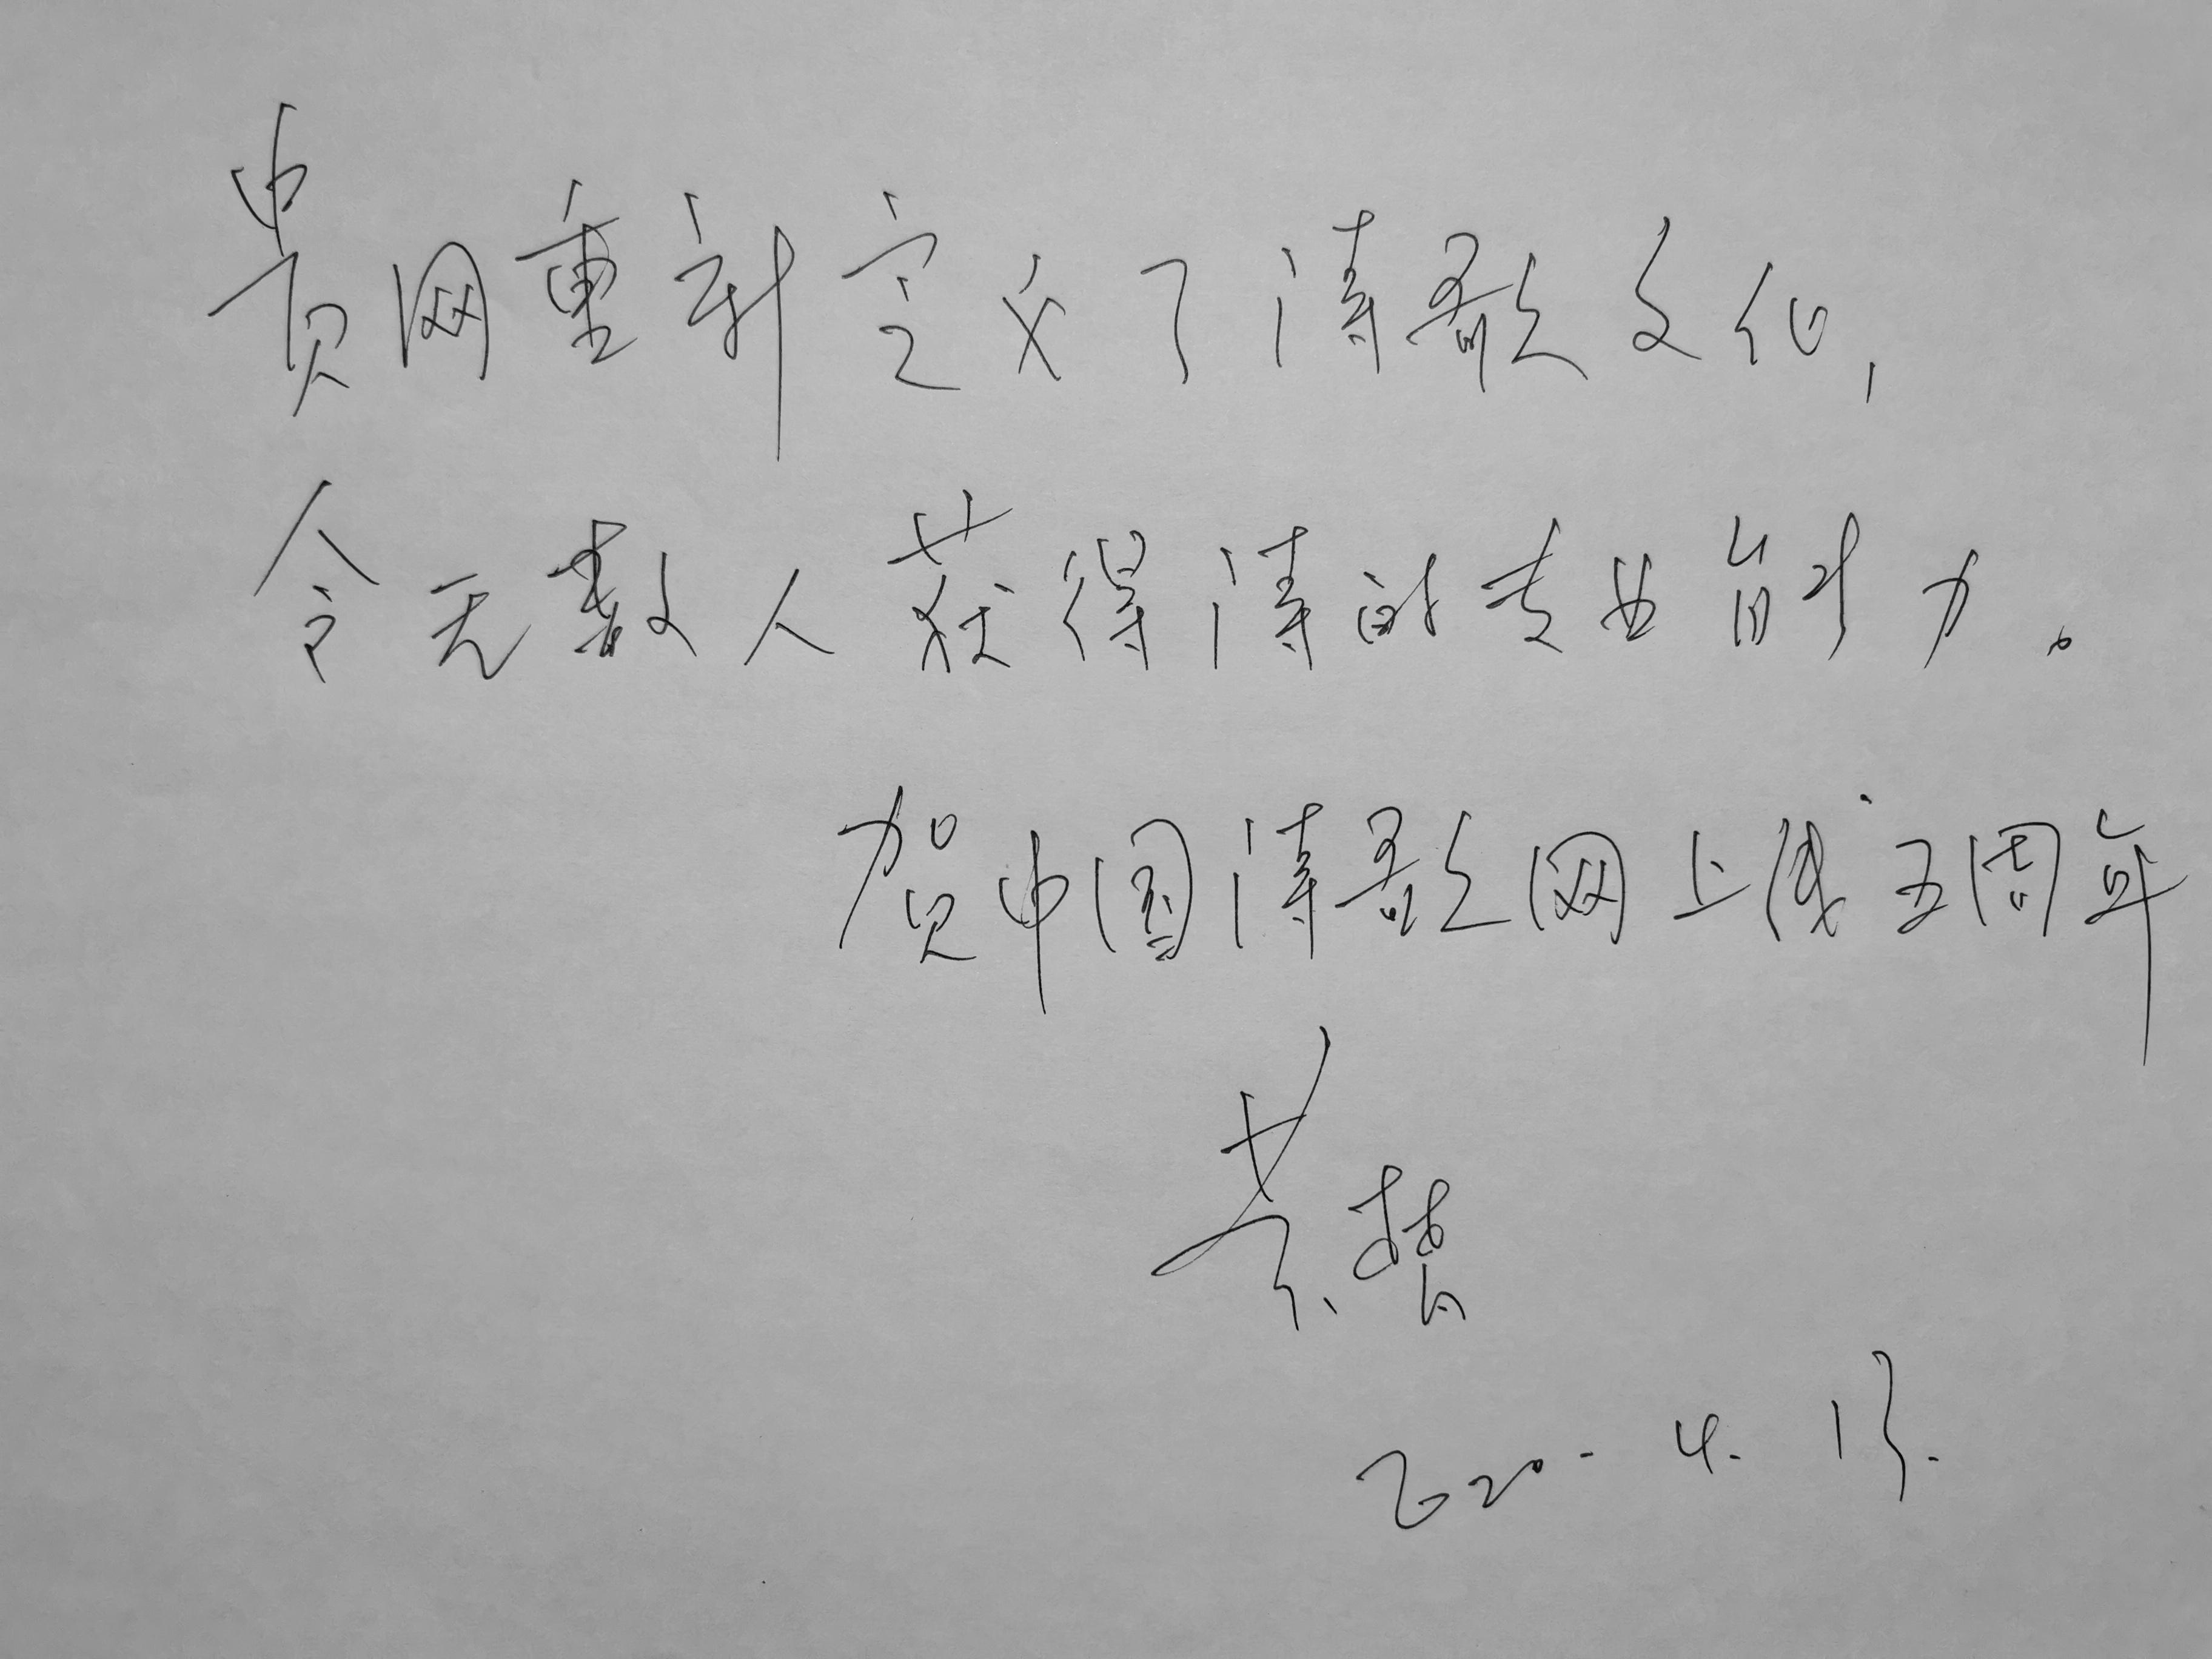 贵网重新定义了诗歌文化，
令无数人获得诗的专业能力。
贺中国诗歌网上线五周年
黄梵
2020.4.13.